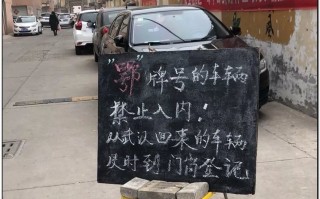 “鄂”牌号的车辆
禁止入内！
从武汉回来的车辆
及时到门岗登记